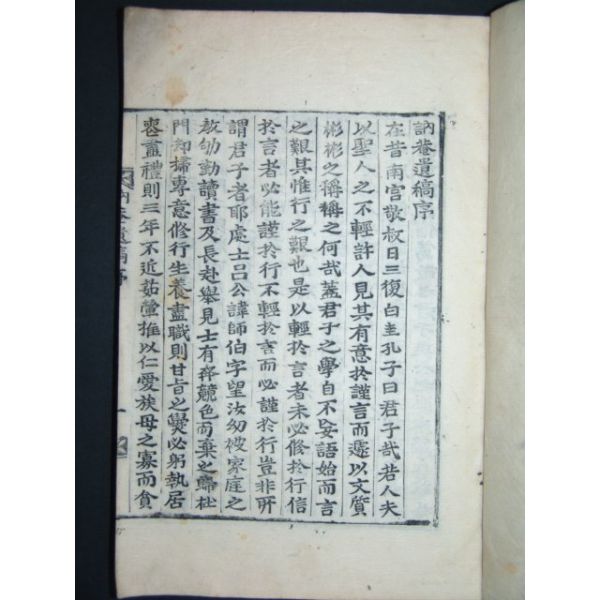 訥菴遺稿序
在昔南宮敬叔日三復白圭孔子曰君子哉若人夫
以聖人之不輕許人見其有意於謹言而遽以文質
彬彬之稱稱之何哉蓋君子之學自不妄語始而言
之艱其惟行之艱也是以輕於言者未必修於行信
於言者必能謹於行不輕於言而必謹於行豈非所
謂君子者耶處士呂公諱師伯字望汝幼被家庭之
敎劬勤讀書及長赴舉見士有奔競色而棄之歸杜
門却掃專意修行生養盡職則甘旨之變必躬執居
喪盡禮則三年不近茹葷推以仁愛族母之寡而貧
訥菴遺稿序 一